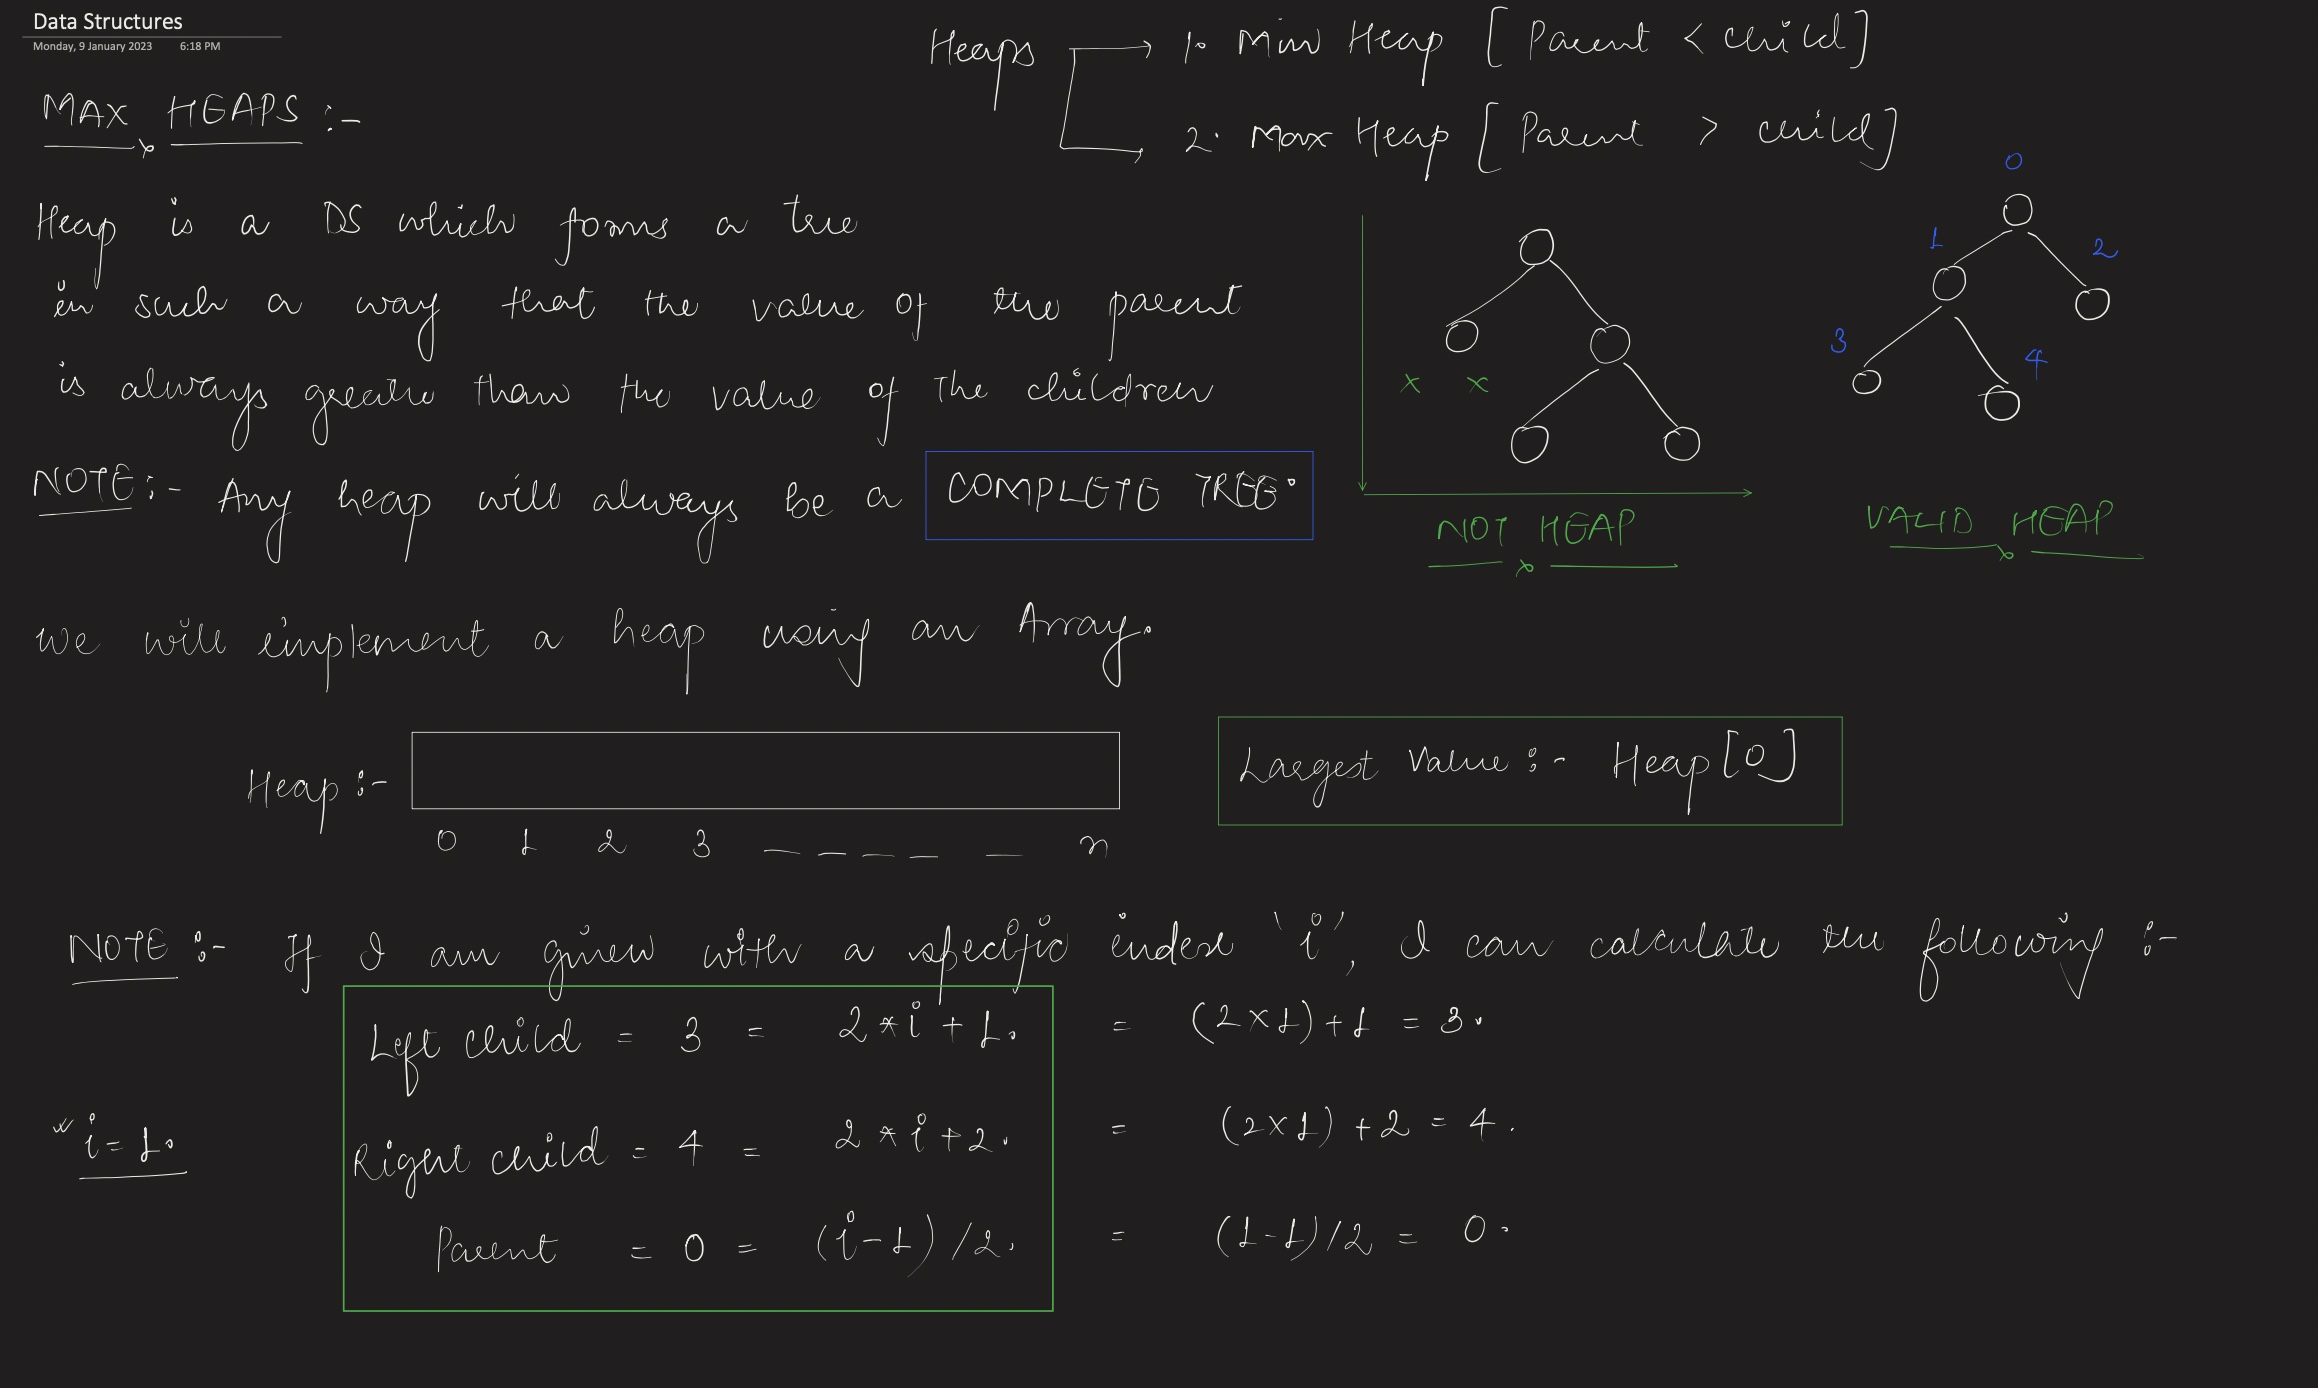 Data Structures
Monday, 9 January 2023 6:18 PM
Heaps
1. Min Heap [Parent < child]
2. Max Heap [Parent > child]
MAX HEAPS :-
Heap is a DS which forms a tree
in such a way that the value of the parent
is always greater than the value of the children
NOTE :- Any heap will always be a COMPLETE TREE.
x x
NOT HEAP
0
1 2
3 4
VALID HEAP
We will implement a heap using an Array.
Heap :-
0 1 2 3 — — — — — n
Largest Value :- Heap[0]
NOTE :- If I am given with a specific index 'i', I can calculate the following :-
Left child = 3 = 2*i+1. = (2×1)+1 = 3.
i=1.
Right child = 4 = 2*i+2. = (2×1)+2 = 4.
Parent = 0 = (i-1)/2. = (1-1)/2 = 0.